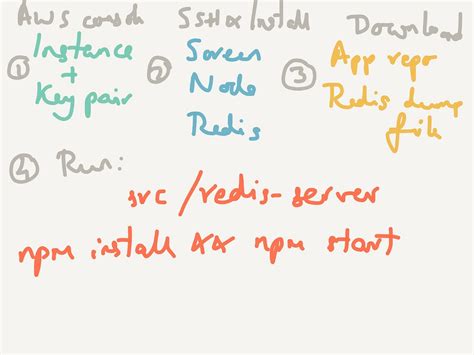 AWS console
① Instance
+
Key pair
SSH & Install
② Screen
Node
Redis
Download
③ App repo
Redis dump
file
④ Run:
src/redis-server
npm install && npm start